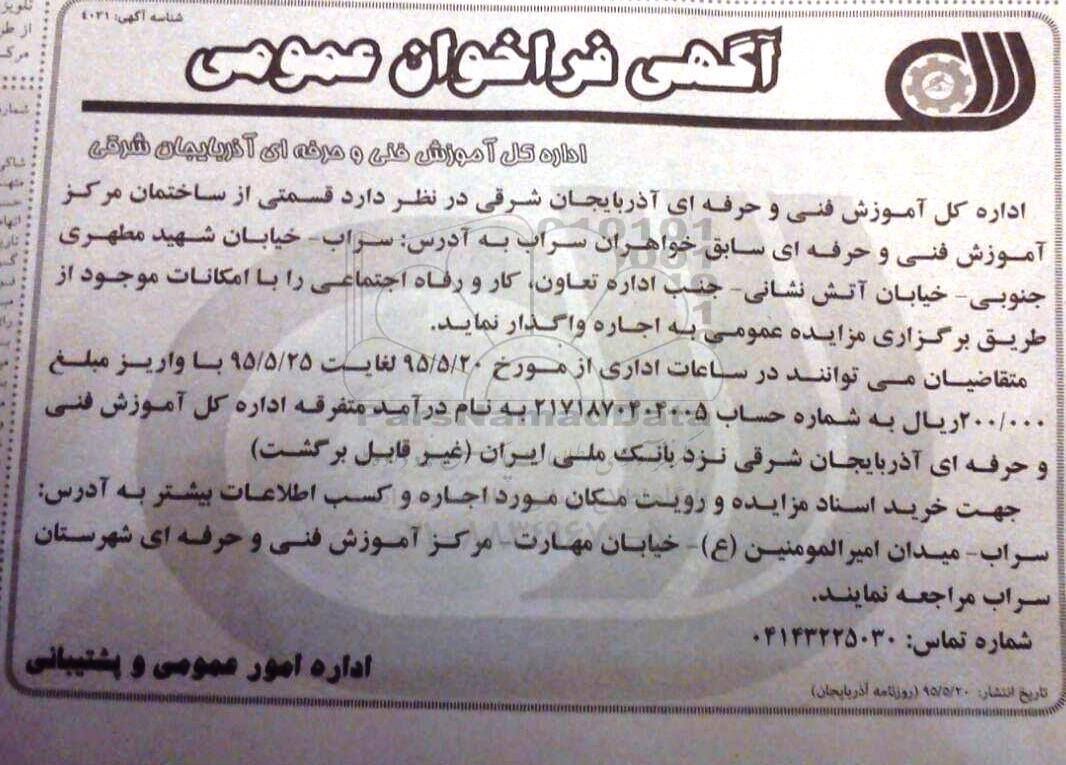 شناسه آگهی: ۴۰۳۱
آگهی فراخوان عمومی
اداره کل آموزش فنی و حرفه ای آذربایجان شرقی
اداره کل آموزش فنی و حرفه ای آذربایجان شرقی در نظر دارد قسمتی از ساختمان مرکز
آموزش فنی و حرفه ای سابق خواهران سراب به آدرس: سراب- خیابان شهید مطهری
جنوبی- خیابان آتش نشانی- جنب اداره تعاون، کار و رفاه اجتماعی را با امکانات موجود از
طریق برگزاری مزایده عمومی به اجاره واگذار نماید.
متقاضیان می توانند در ساعات اداری از مورخ ۹۵/۵/۲۰ لغایت ۹۵/۵/۲۵ با واریز مبلغ
۲۰۰/۰۰۰ریال به شماره حساب ۲۱۷۱۸۷۰۲۰۲۰۰۵ به نام درآمد متفرقه اداره کل آموزش فنی
ParsNamadData
و حرفه ای آذربایجان شرقی نزد بانک ملی ایران (غیر قابل برگشت)
جهت خرید اسناد مزایده و رویت مکان مورد اجاره و کسب اطلاعات بیشتر به آدرس:
سراب- میدان امیرالمومنین (ع)- خیابان مهارت- مرکز آموزش فنی و حرفه ای شهرستان
سراب مراجعه نمایند.
شماره تماس: ۰۴۱۴۳۲۲۵۰۳۰
اداره امور عمومی و پشتیبانی
تاریخ انتشار: ۹۵/۵/۲۰ (روزنامه آذربایجان)